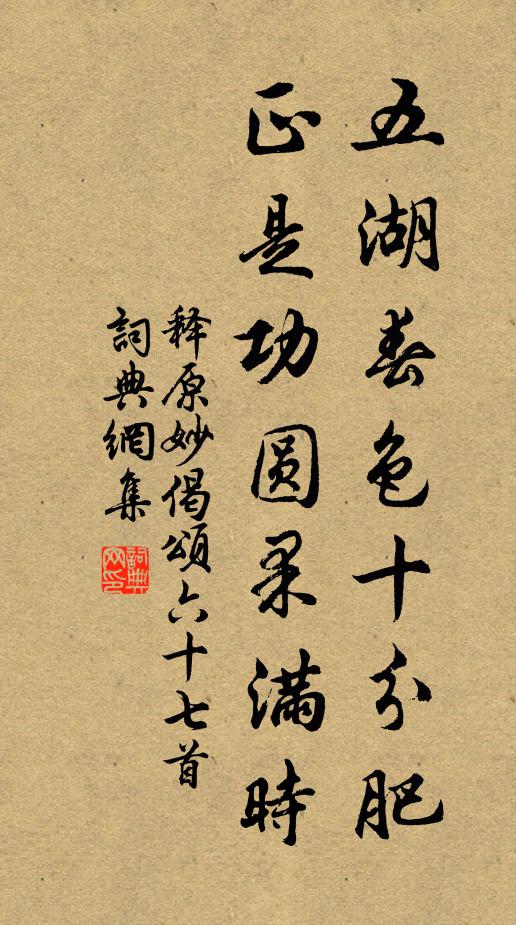 五湖春色十分肥
正是功圆果滿時
释原妙偈頌六十七首
詞典網集
詞典网印